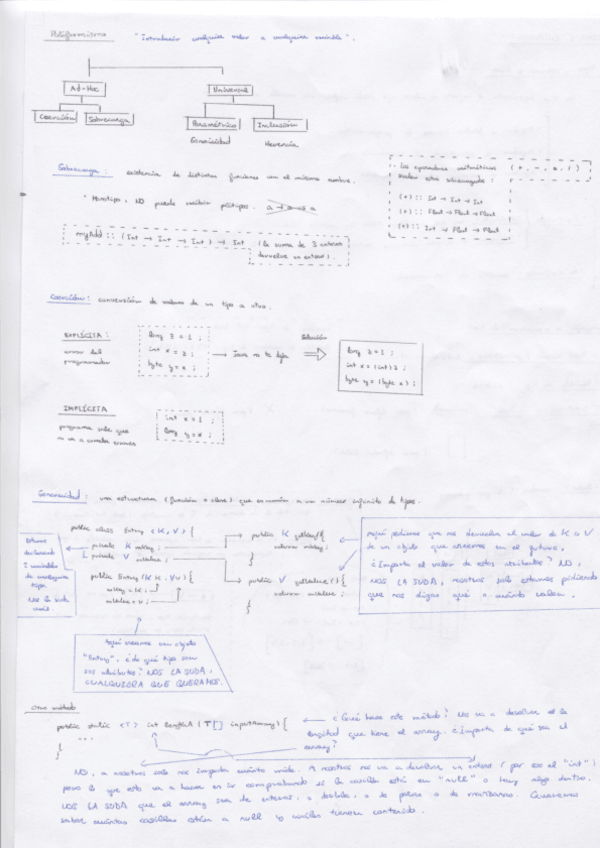 Polimorfismo "Introducir cualquier valor a cualquier variable".
Ad-Hoc
Universal
Coerción
Sobrecarga
Paramétrico
Inclusión
Genericidad
Herencia
Sobrecarga: existencia de distintas funciones con el mismo nombre.
* Monotipos, NO puede escribir politipos. a → a → a
myAdd :: (Int → Int → Int) → Int (la suma de 3 enteros
devuelve un entero).
Los operadores aritméticos (+, -, *, /)
suelen estar sobrecargados:
(+) :: Int → Int → Int
(+) :: Float → Float → Float
(+) :: Int → Float → Float
Coerción: conversión de valores de un tipo a otro.
EXPLÍCITA:
error del
programador
long z = 1;
int x = z;
byte y = x;
→ Java no te deja
Solución
long z = 1;
int x = (int) z;
byte y = (byte x);
IMPLÍCITA
programa sabe que
no va a cometer errores
int x = 1;
long y = x;
Genericidad: una estructura (función o clase) que en común a un número infinito de tipos.
public class Entry <K, V> {
private K mKey;
private V mValue;
public Entry (K k, V v) {
mKey = k;
mValue = v;
public K getKey() {
return mKey;
}
public V getValue() {
return mValue;
}
Estamos
declarando
2 variables
de cualquier
tipo.
Nos la suda
cuál.
Aquí creamos un objeto
"Entry", ¿de qué tipo son
sus atributos? NOS LA SUDA,
CUALQUIERA QUE QUERAMOS.
Aquí pedimos que nos devuelvan el valor de K o V
de un objeto que creemos en el futuro,
¿Importa el valor de estos atributos? NO,
NOS LA SUDA, nosotros solo estamos pidiendo
que nos digan qué o cuánto valen.
Otro método
public static <T> int lengthA (T[] inputArray) {
...
}
¿Qué hace este método? Nos va a devolver el la
longitud que tiene el array. ¿Importa de qué sea el
array?
NO, a nosotros solo nos importa cuánto mide. A nosotros nos va a devolver un entero (por eso el "int")
pero lo que esto va a hacer es ir comprobando si la casilla está en "null" o hay algo dentro.
NOS LA SUDA que el array sea de enteros, o doubles, o de peras o de manzanas. Queremos
saber cuántas casillas están a null y cuáles tienen contenido.